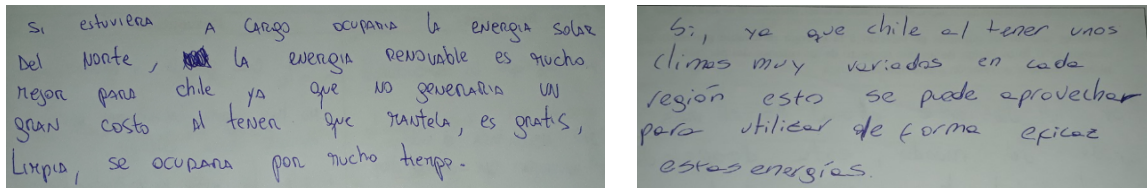 Si estuviera a cargo ocuparia la energia solar
del norte, la energia renovable es mucho
mejor para chile ya que no generaria un
gran costo al tener que mantela, es gratis,
limpia, se ocupara por mucho tiempo.
Si, ya que chile al tener unos
climas muy variados en cada
región esto se puede aprovechar
para utilizar de forma eficaz
estas energías.